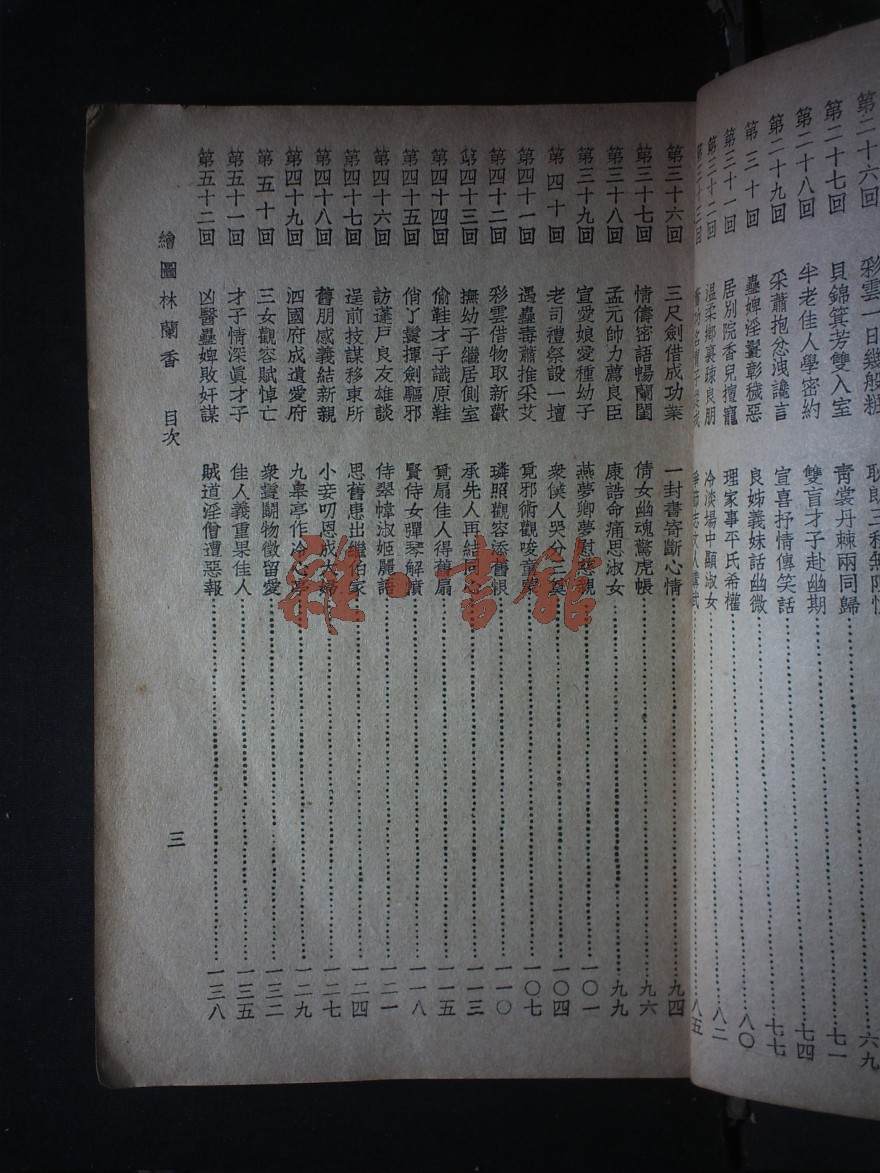 第二十六回 彩雲一日幾般粧 耿郎三 六九
第二十七回 貝錦箕芳雙入室 靑裳丹棘兩同歸 七一
第二十八回 半老佳人學密約 雙盲才子赴幽期 七四
第二十九回 采蕭抱忿洩讒言 宣喜抒情傳笑話 七七
第三十回 蠱婢淫鬟彰穢惡 良姊義妹話幽微 八〇
第三十一回 居別院香兒擅寵 理家事平氏希權 八二
第三十二回 温柔鄉裏疎良朋 冷淡場中顯淑女 八五
第三十三回
第三十六回 三尺劍借成功業 一封書寄斷心情 九四
第三十七回 情儔密語暢蘭閨 倩女幽魂驚虎帳 九六
第三十八回 孟元帥力薦良臣 康誥命痛思淑女 九九
第三十九回 宣愛娘愛種幼子 燕夢卿夢慰慈親 一〇一
第四十回 老司禮祭設一壇 衆僕人哭分三奠 一〇四
第四十一回 遇蠱毒蕭推采艾 覓邪術觀唆童蒙 一〇七
第四十二回 彩雲借物取新歡 璘照觀容添舊恨 一一〇
第四十三回 撫幼子繼居側室 承先人再結同心 一一三
第四十四回 偷鞋才子識原鞋 覓扇佳人得舊扇 一一五
第四十五回 俏丫鬟揮劍驅邪 賢侍女彈琴解憤 一一八
第四十六回 訪蓬戶良友雄談 侍翠幃淑姬麗語 一二一
第四十七回 逞前技謀移東所 思舊患出繼伯家 一二四
第四十八回 舊朋感義結新親 小妾叨恩成大婦 一二七
第四十九回 泗國府成遺愛府 九皋亭作冷心亭 一二九
第五十回 三女觀容賦悼亡 衆鬟鬬物徵留愛 一三二
第五十一回 才子情深眞才子 佳人義重果佳人 一三五
第五十二回 凶醫蠱婢敗奸謀 賊道淫僧遭惡報 一三八
繪圖林蘭香 目次 三
雜·書館